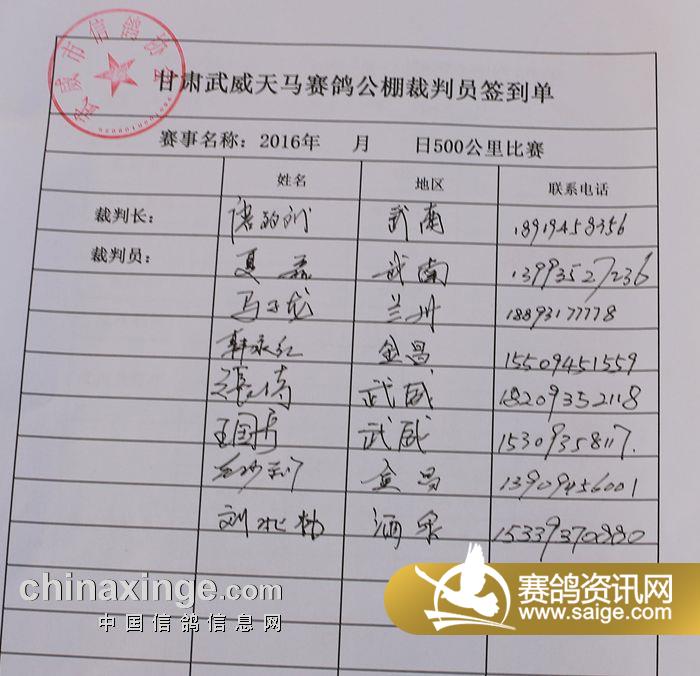 甘肃武威天马赛鸽公棚裁判员签到单
赛事名称：2016年 月 日500公里比赛
姓名 地区 联系电话
裁判长： 武南 18919458356
裁判员： 夏磊 武南 13993527236
马玉龙 兰州 18893177778
韩永红 金昌 15509451559
张琦 武威 18209352118
王国彦 武威 15309358117.
金昌 13909456001
刘 酒泉 15339370880
chinaxinge.com
中国信鸽信息网
赛鸽资讯网
www.saige.com